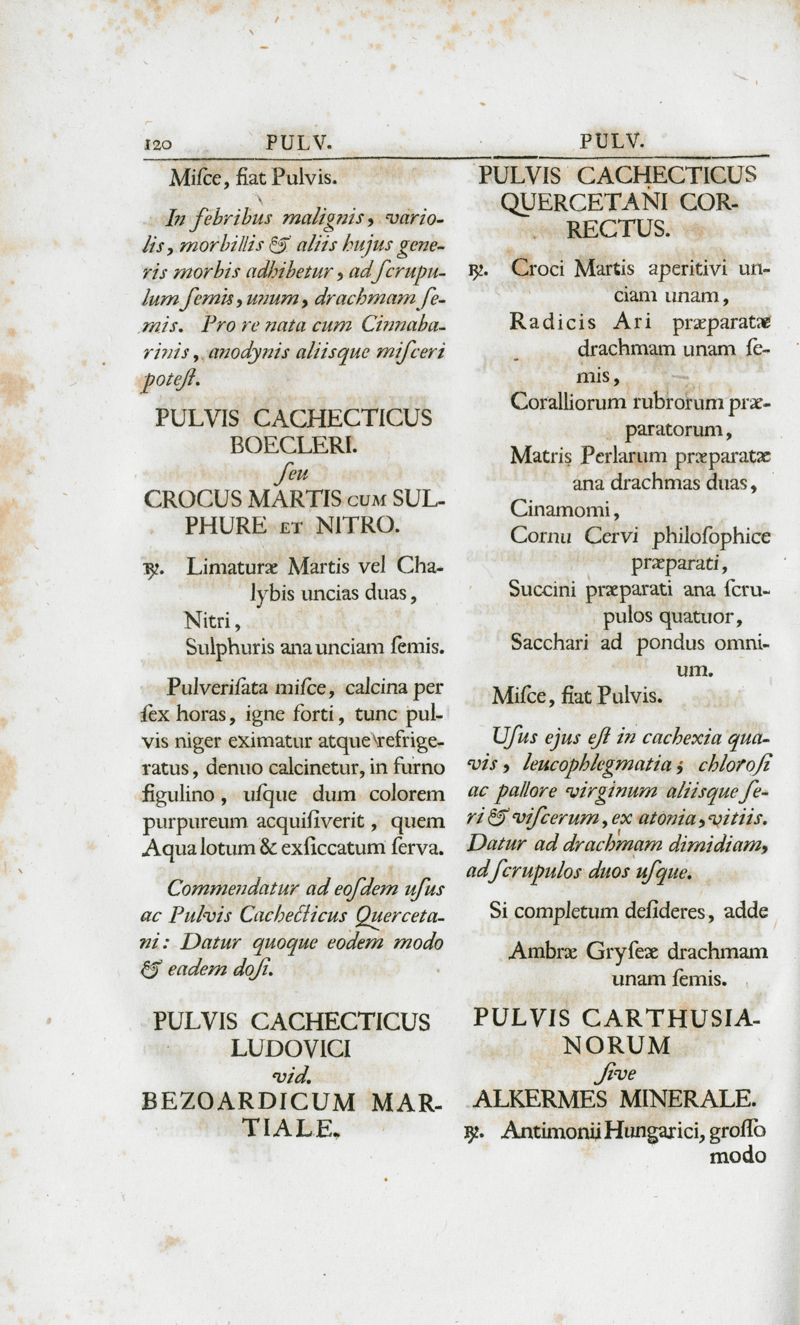 120 PULV.
Miſce, fiat Pulvis.
In febribus malignis, vario-
lis, morbillis & aliis hujus gene-
ris morbis adhibetur, ad ſcrupu-
lum ſemis, unum, drachmam ſe-
mis. Pro re nata cum Cinnaba-
rinis, anodynis aliisque miſceri
poteſt.
PULVIS CACHECTICUS
BOECLERI.
ſeu
CROCUS MARTIS CUM SUL-
PHURE ET NITRO.
℞. Limaturæ Martis vel Cha-
lybis uncias duas,
Nitri,
Sulphuris ana unciam ſemis.
Pulveriſata miſce, calcina per
ſex horas, igne forti, tunc pul-
vis niger eximatur atque refrige-
ratus, denuo calcinetur, in furno
figulino, uſque dum colorem
purpureum acquiſiverit, quem
Aqua lotum & exſiccatum ſerva.
Commendatur ad eoſdem uſus
ac Pulvis Cachecticus Querceta-
ni: Datur quoque eodem modo
& eadem doſi.
PULVIS CACHECTICUS
LUDOVICI
vid.
BEZOARDICUM MAR-
TIALE.
PULV.
PULVIS CACHECTICUS
QUERCETANI COR-
RECTUS.
℞. Croci Martis aperitivi un-
ciam unam,
Radicis Ari præparatæ
drachmam unam ſe-
mis,
Coralliorum rubrorum præ-
paratorum,
Matris Perlarum præparatæ
ana drachmas duas,
Cinamomi,
Cornu Cervi philoſophice
præparati,
Succini præparati ana ſcru-
pulos quatuor,
Sacchari ad pondus omni-
um.
Miſce, fiat Pulvis.
Uſus ejus eſt in cachexia qua-
vis, leucophlegmatia; chloroſi
ac pallore virginum aliisque ſe-
ri & viſcerum, ex atonia, vitiis.
Datur ad drachmam dimidiam,
ad ſcrupulos duos uſque.
Si completum deſideres, adde
Ambræ Gryſeæ drachmam
unam ſemis.
PULVIS CARTHUSIA-
NORUM
ſive
ALKERMES MINERALE.
℞. Antimonii Hungarici, groſſo
modo